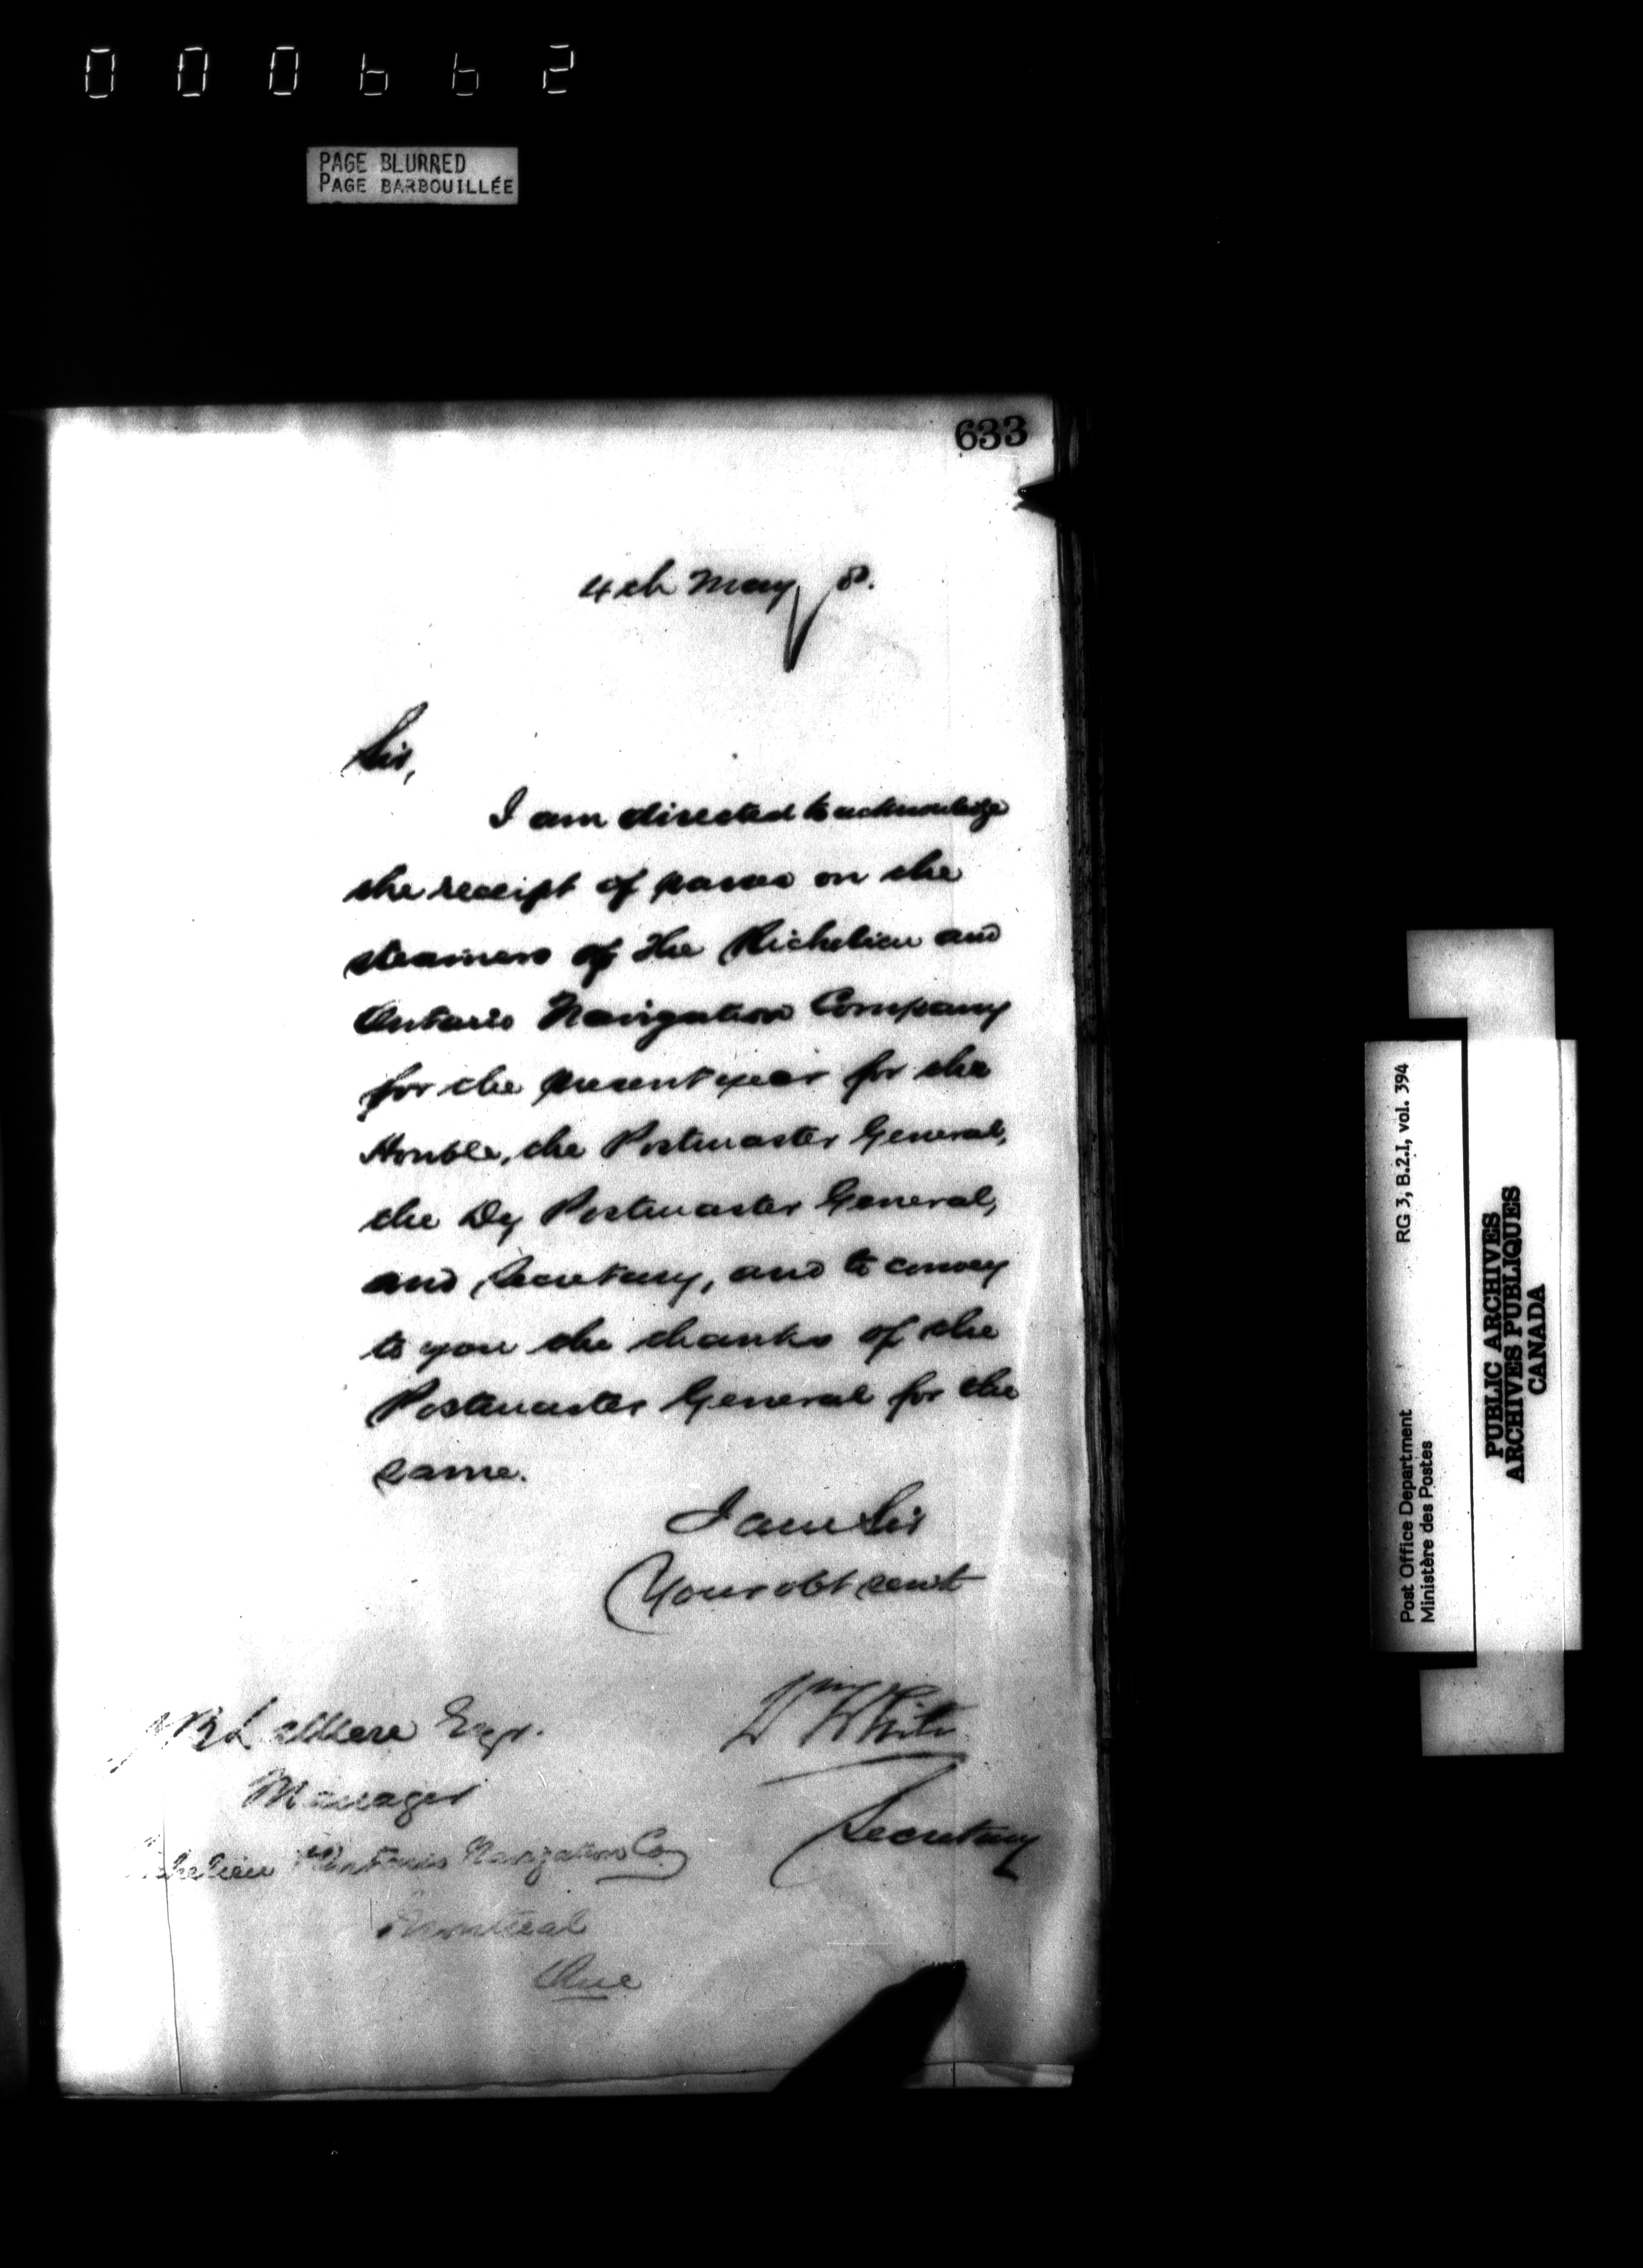 000662
PAGE BLURRED
PAGE BARBOUILLÉE
633
4th May 8.
Sir,
I am directed to acknowledge
the receipt of passes on the
steamers of the Richelieu and
Ontario Navigation Company
for the present year for the
Honble. the Postmaster General,
the Dy Postmaster General,
and Secretary, and to convey
to you the thanks of the
Postmaster General for the
same.
I am Sir
Your obt servt
Wm White
Secretary
Esqr.
Manager
Ontario Navigation Coy
Montreal
Que
Post Office Department RG 3, B.2.I, vol. 394
Ministère des Postes
PUBLIC ARCHIVES
ARCHIVES PUBLIQUES
CANADA